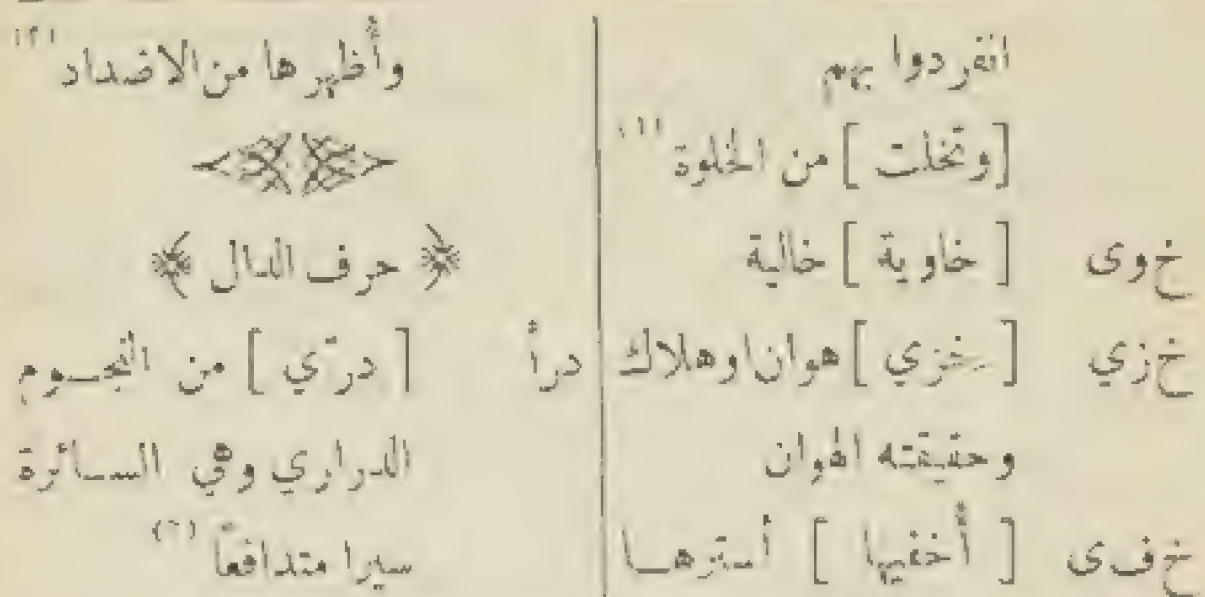 انفردوا بهم
[وتخلت] من الخلوة (١)
خ وى [خاوية] خالية
خ زي [خزي] هوان اوهلاك
وحقيقته الهوان
خ ف ى [أخفيها] أسترها
وأظهرها من الاضداد (٢)
﴿ حرف الدال ﴾
درأ [درّي] من النجوم
الدراري وهي السائرة
سيرا متدافعاً (٣)